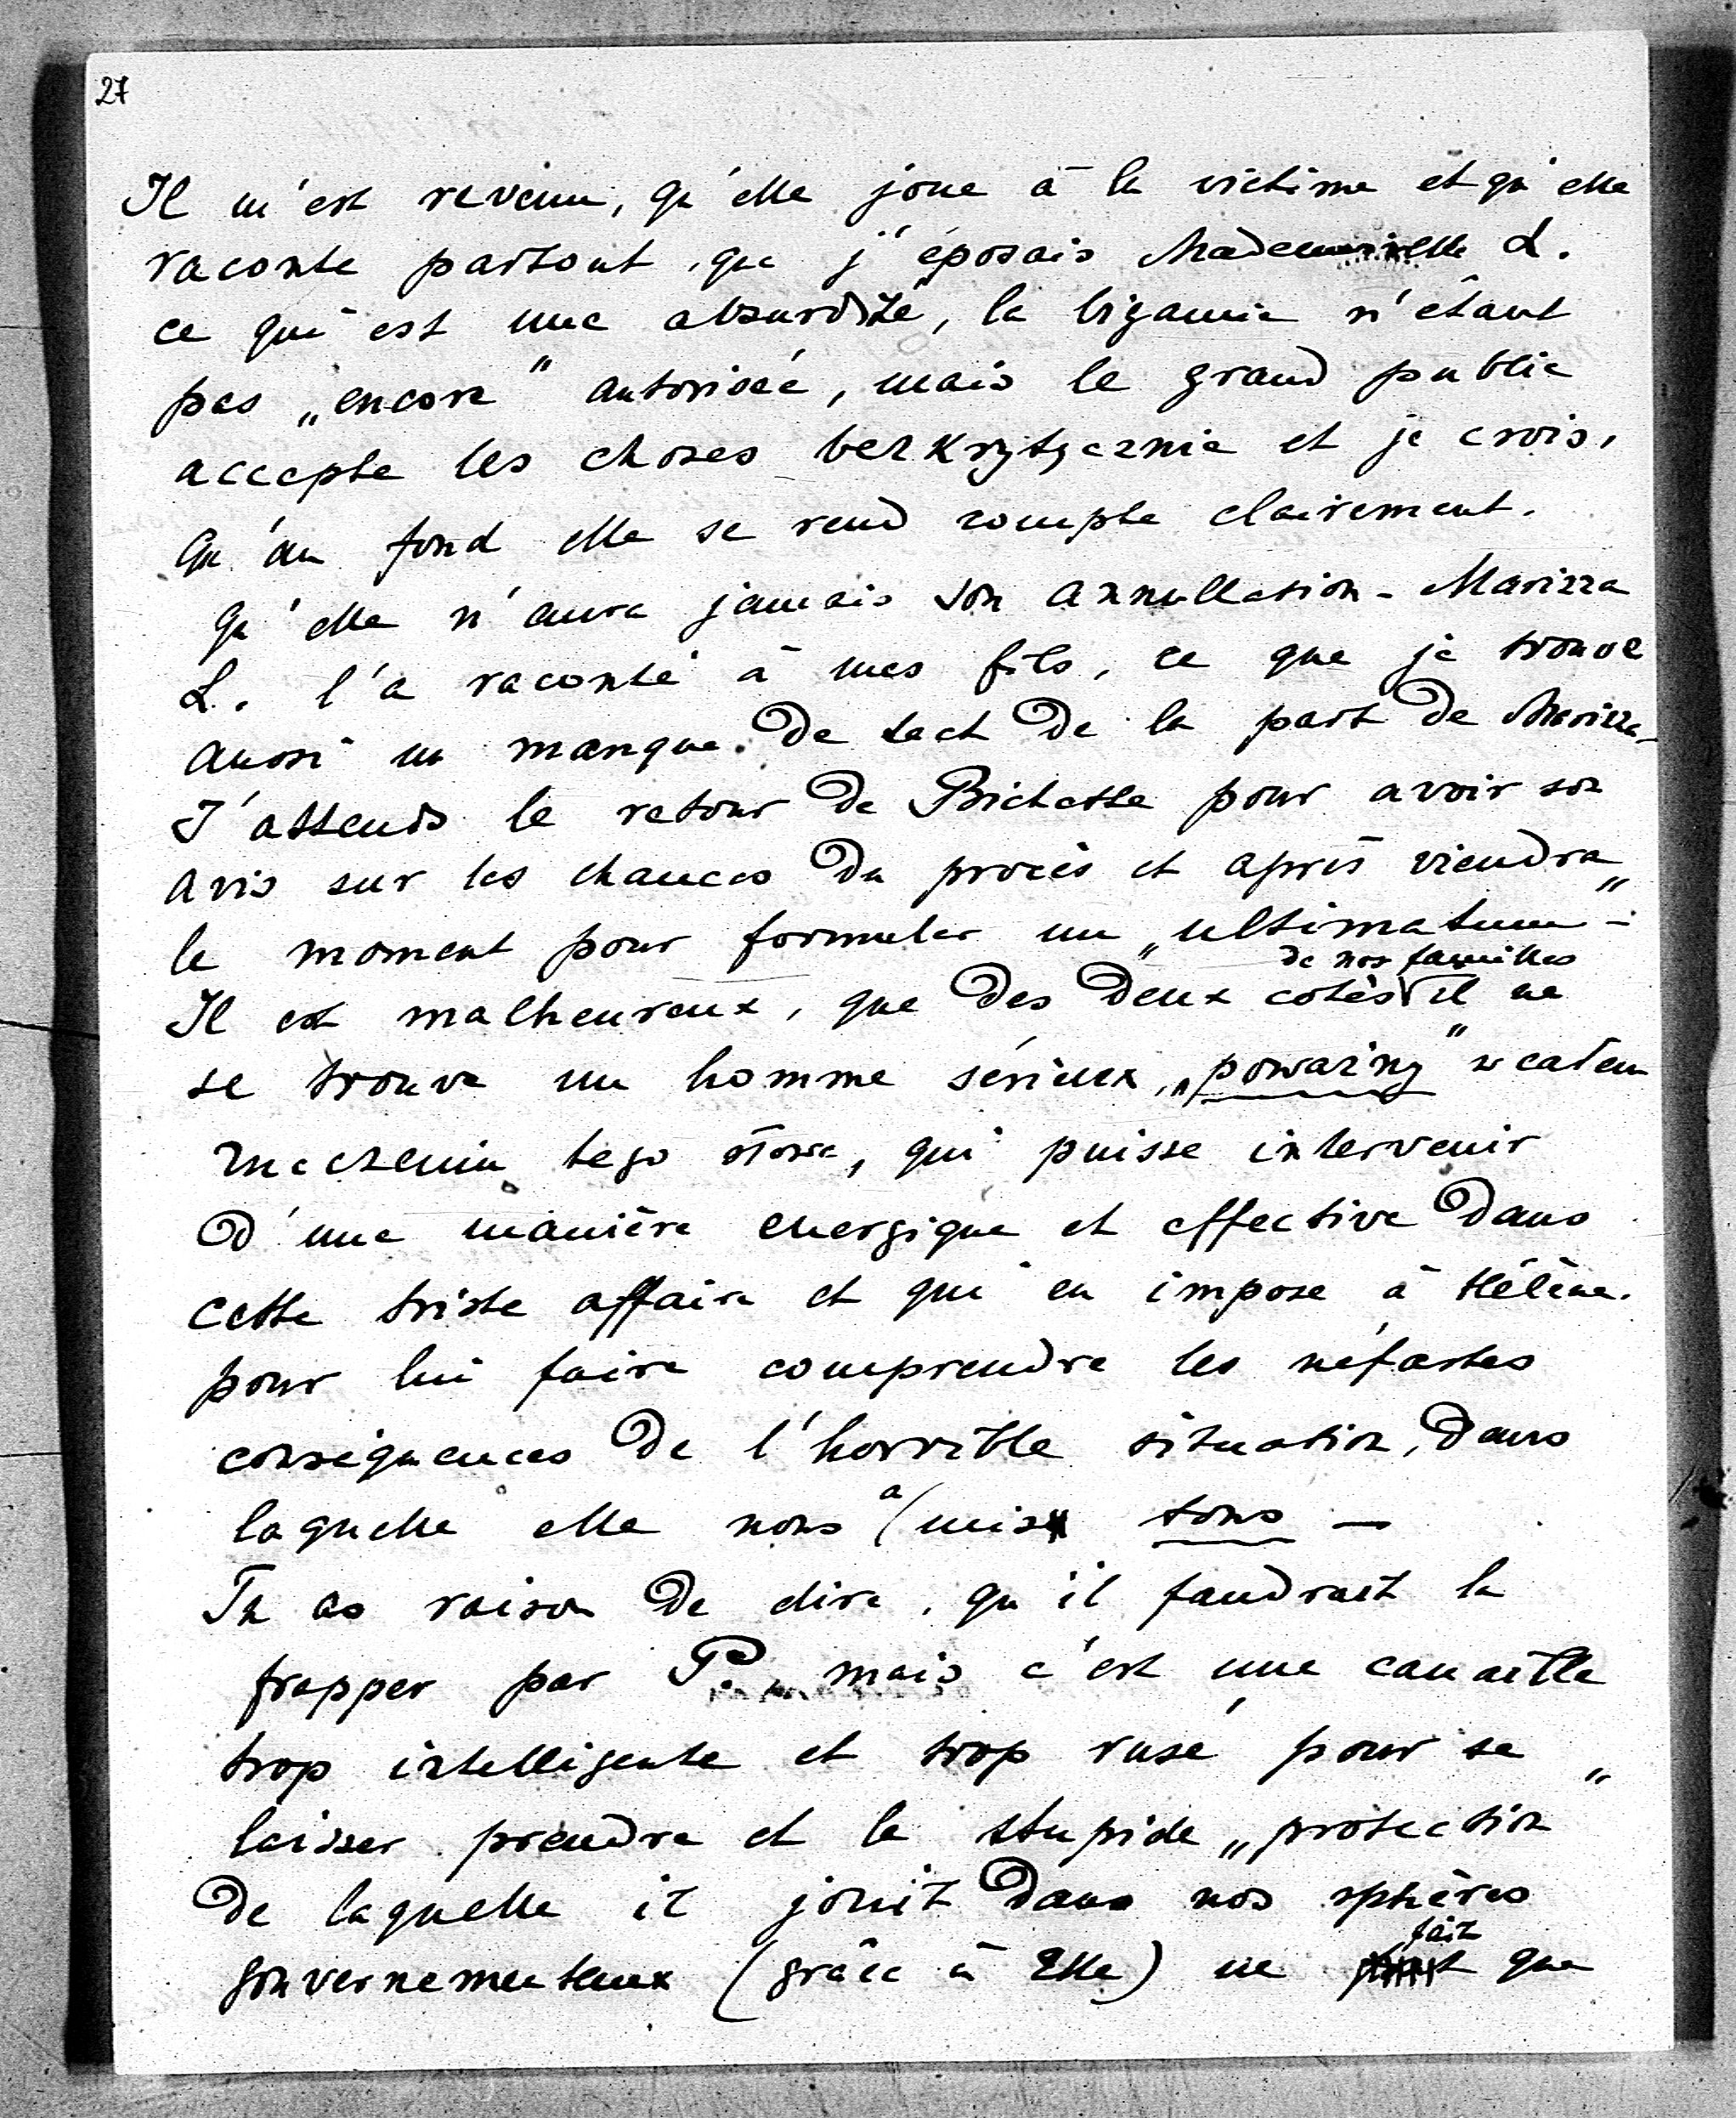 27
Il m'est revenu, qu'elle joue à la victime et qu'elle
raconte partout, que j'éposais Mademoiselle L.
ce qui est une absurdité, la bigamie n'étant
pas „encore" autorisée, mais le grand public
accepte les choses bezkrytycznie et je crois,
qu'au fond elle se rend compte clairement.
qu'elle n'aura jamais son annullation - Marizza
L. l'a raconté à mes fils, ce que je trouve
aussi un manque de tact de la part de Marizza -
J'attends le retour de Bichette pour avoir son
avis sur les chances du procès et après viendra
le moment pour formuler un „ultimatum" -
de nos familles
Il est malheureux, que des deux cotès il ne
se trouve un homme sérieux, „poważny" w całem
znaczeniu tego słowa, qui puisse intervenir
d'une manière energique et effective dans
cette triste affaire et qui en impose à Hélène.
pour lui faire comprendre les néfastes
conséquences de l'horrible situation, dans
laquelle elle nous a mis tous —
Tu as raison de dire, qu'il faudrait la
frapper par P. mais c'est une canaille
trop intelligente et trop rusé pour se
laisser prendre et la stupide „protection"
de laquelle il jouit dans nos sphères
gouvernementaux (grâce à Elle) ne fait que